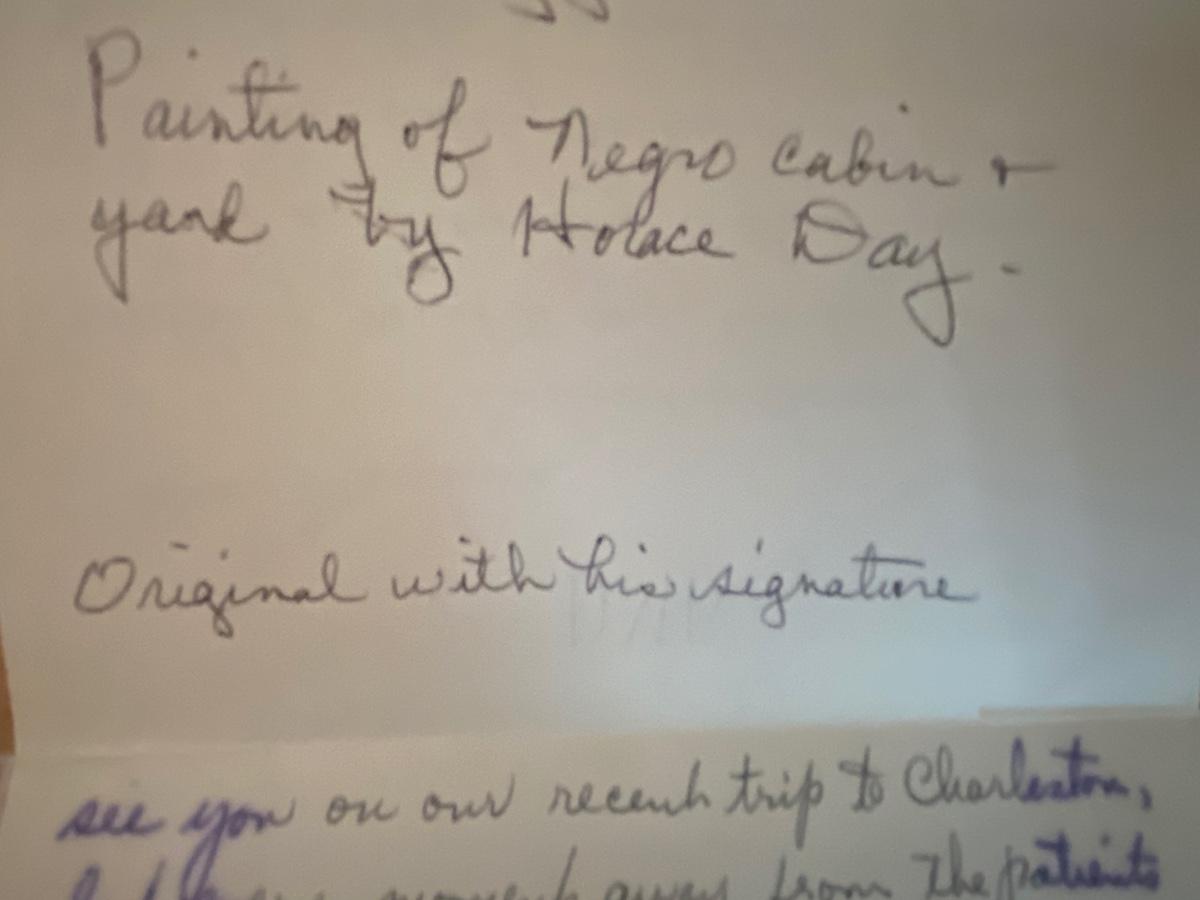 Painting of Negro cabin +
yard by Horace Day.
Original with his signature
see you on our recent trip to Charleston,
moment away from the patients